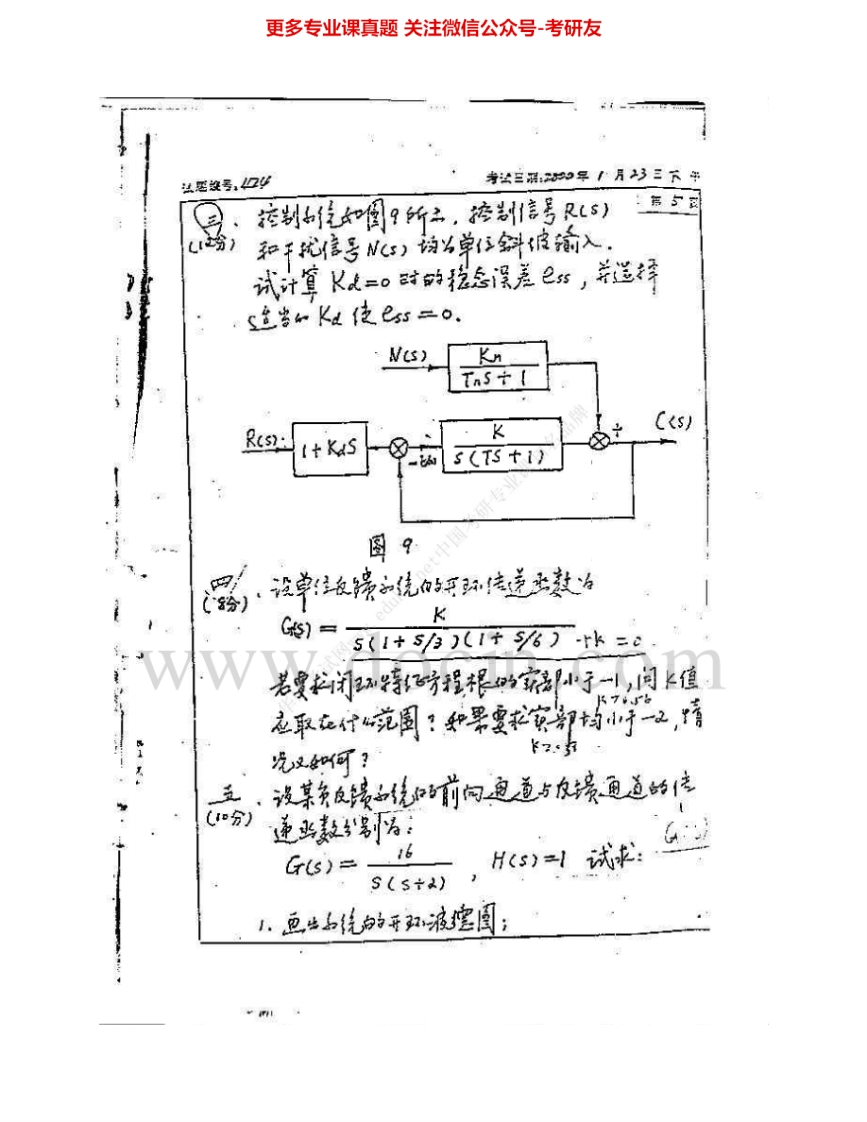 更多专业课真题 关注微信公众号-考研友
试题编号:424
考试日期:2000年1月23日下午
第5页
三、控制系统如图9所示,控制信号R(s)
(12分) 和干扰信号N(s)均为单位斜坡输入.
试计算Kd=0时的稳态误差ess,并选择
适当的Kd使ess=0.
N(s)
Kn
TnS+1
R(s)
1+KdS
K
S(TS+1)
+
C(s)
图9
四、设单位反馈系统的开环传递函数为
(8分)
G(s)= K
S(1+S/3)(1+S/6) +k=0
若要求闭环特征方程根的实部小于-1,问K值
应取在什么范围?如果要求实部均小于-2,情
况又如何?
五、设某负反馈系统的前向通道与反馈通道的传
(10分) 递函数分别为:
G(s)= 16
S(S+2) , H(s)=1 试求:
1.画出系统的开环波德图;
www.docin.com